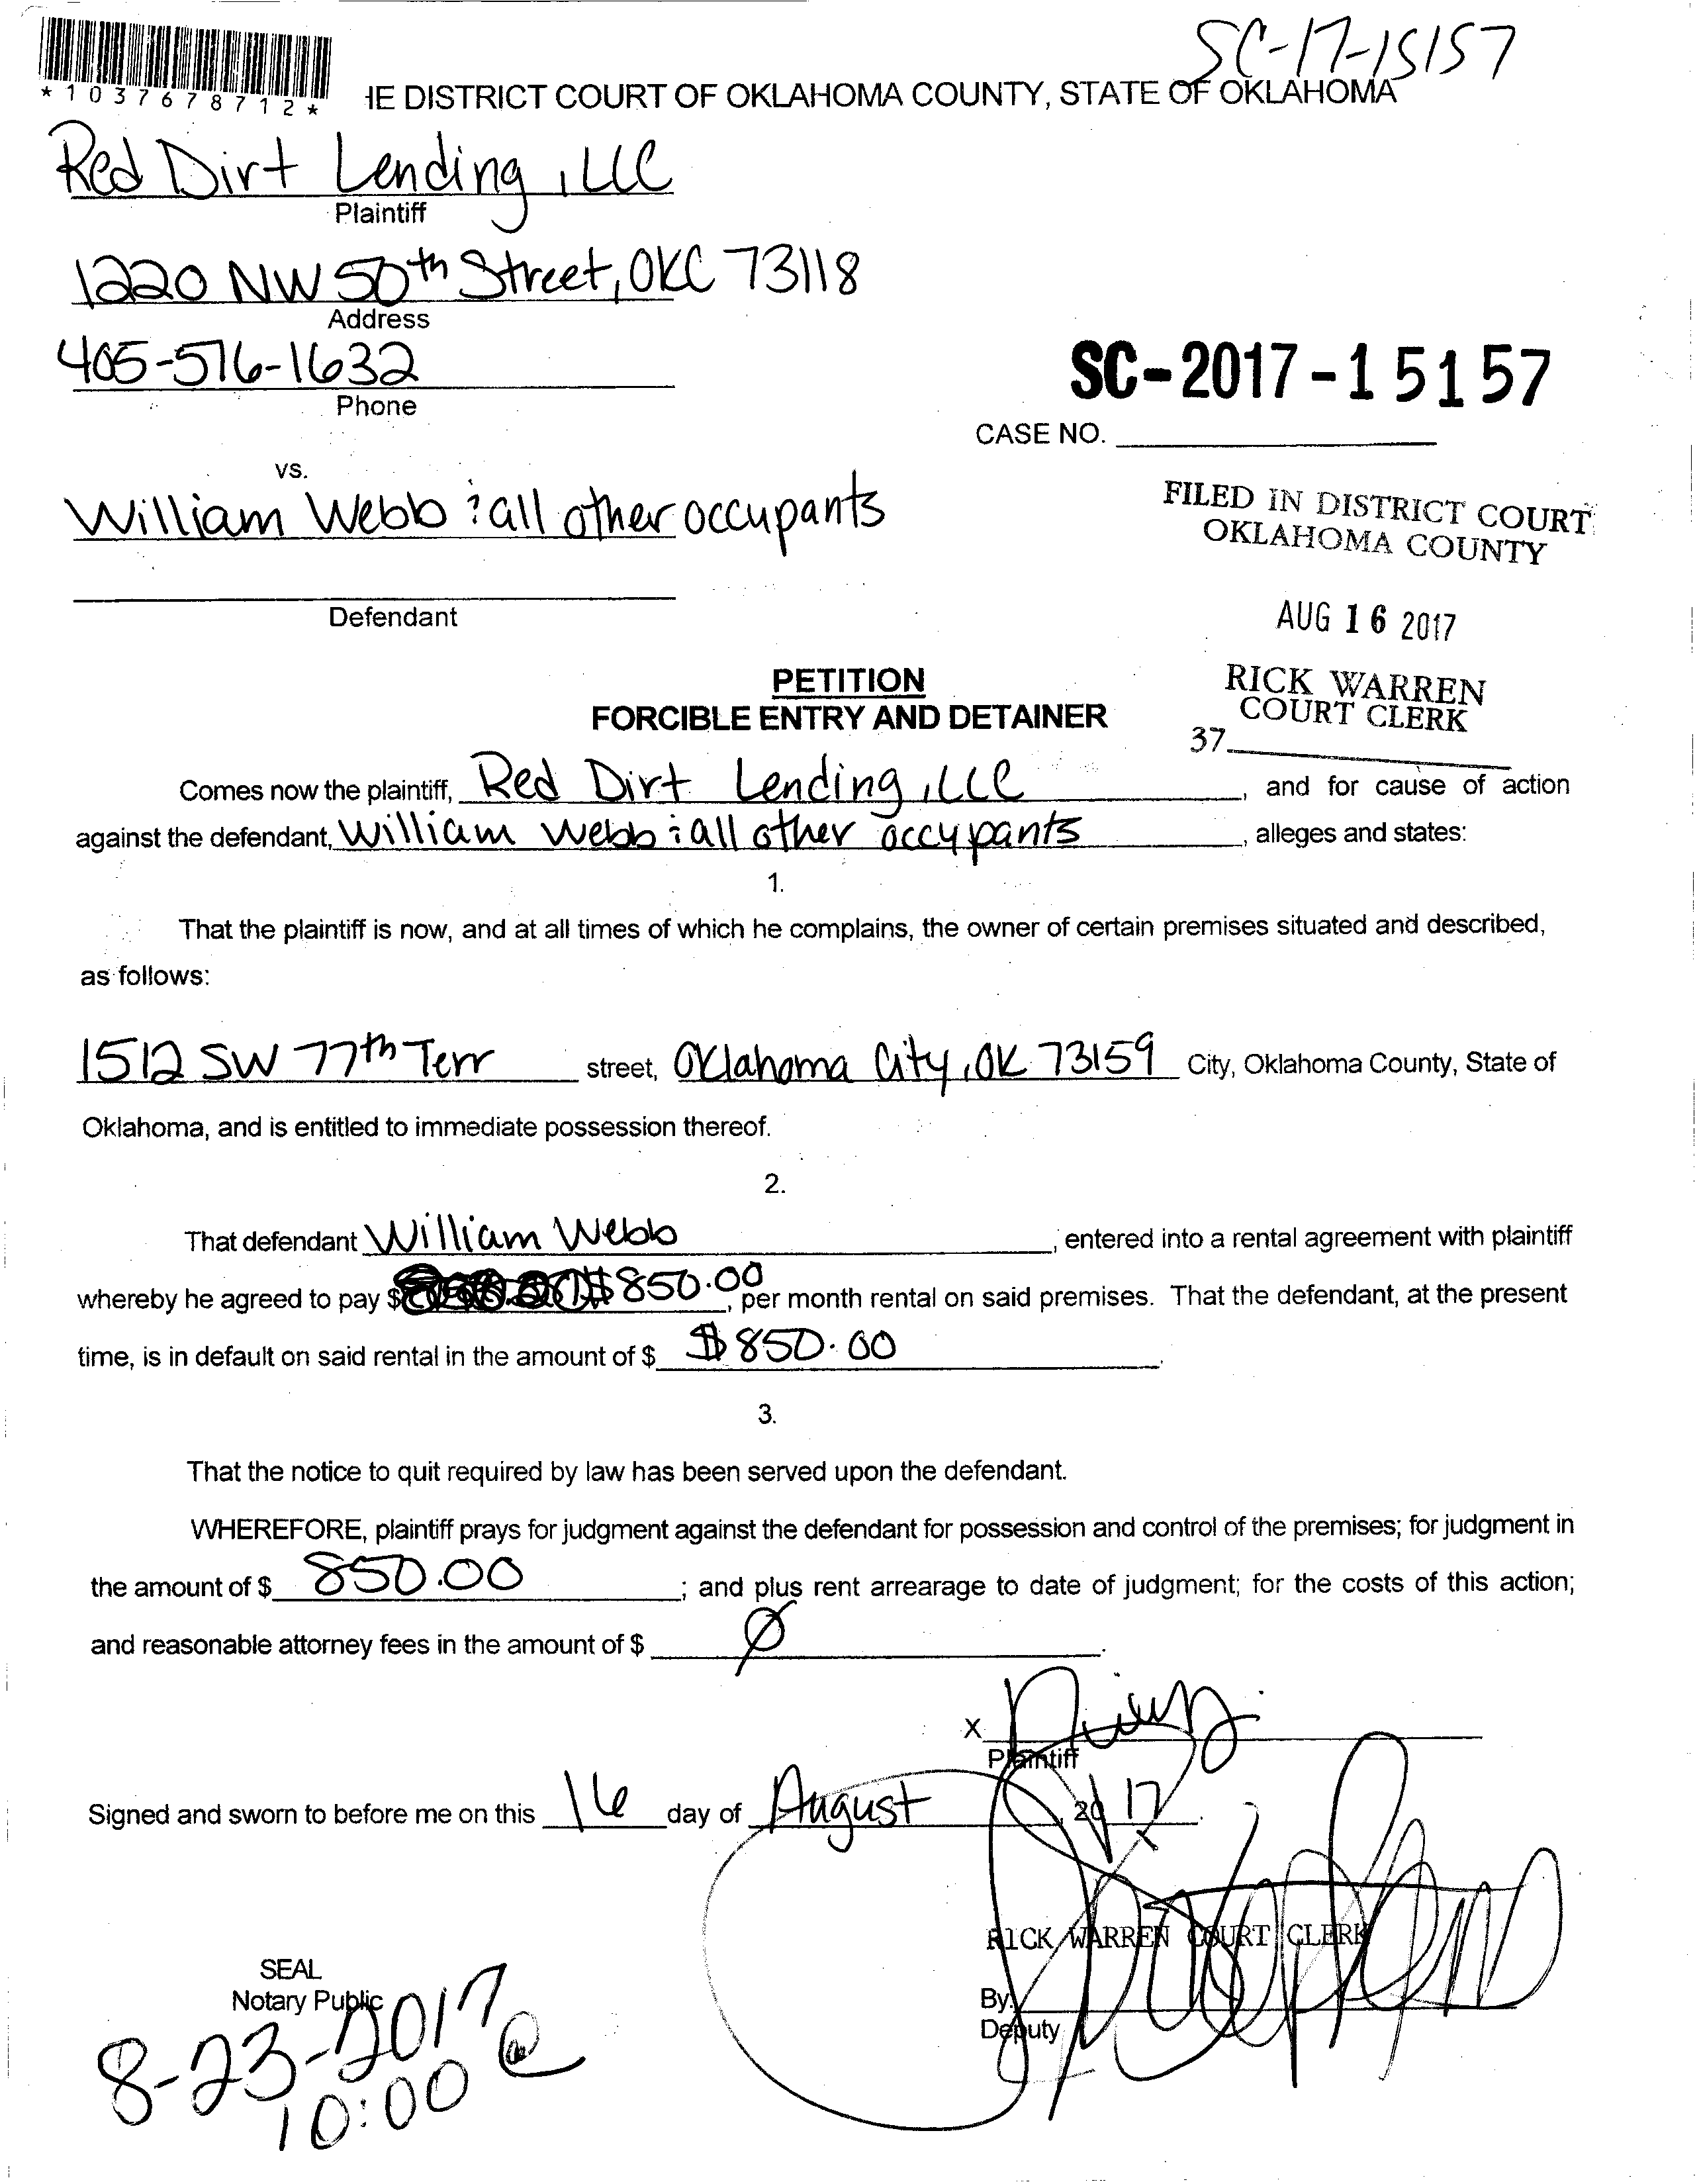 SC-17-15157
*1037678712*
IE DISTRICT COURT OF OKLAHOMA COUNTY, STATE OF OKLAHOMA
Red Dirt Lending, LLC
Plaintiff
1220 NW 50th Street, OKC 73118
Address
405-576-1632
Phone
SC-2017-15157
CASE NO.
vs.
William Webb & all other occupants
Defendant
FILED IN DISTRICT COURT
OKLAHOMA COUNTY
AUG 16 2017
RICK WARREN
COURT CLERK
37
PETITION
FORCIBLE ENTRY AND DETAINER
Comes now the plaintiff, Red Dirt Lending, LLC, and for cause of action
against the defendant, William Webb & all other occupants, alleges and states:
1.
That the plaintiff is now, and at all times of which he complains, the owner of certain premises situated and described,
as follows:
1512 SW 77th Terr street, Oklahoma City, OK 73159 City, Oklahoma County, State of
Oklahoma, and is entitled to immediate possession thereof.
2.
That defendant William Webb, entered into a rental agreement with plaintiff
whereby he agreed to pay $ $850.00, per month rental on said premises. That the defendant, at the present
time, is in default on said rental in the amount of $ $850.00.
3.
That the notice to quit required by law has been served upon the defendant.
WHEREFORE, plaintiff prays for judgment against the defendant for possession and control of the premises; for judgment in
the amount of $ 850.00; and plus rent arrearage to date of judgment; for the costs of this action;
and reasonable attorney fees in the amount of $ Ø.
X
Plaintiff
Signed and sworn to before me on this 16 day of August, 2017.
RICK WARREN COURT CLERK
SEAL
Notary Public
By:
Deputy
8-23-2017 @
10:00